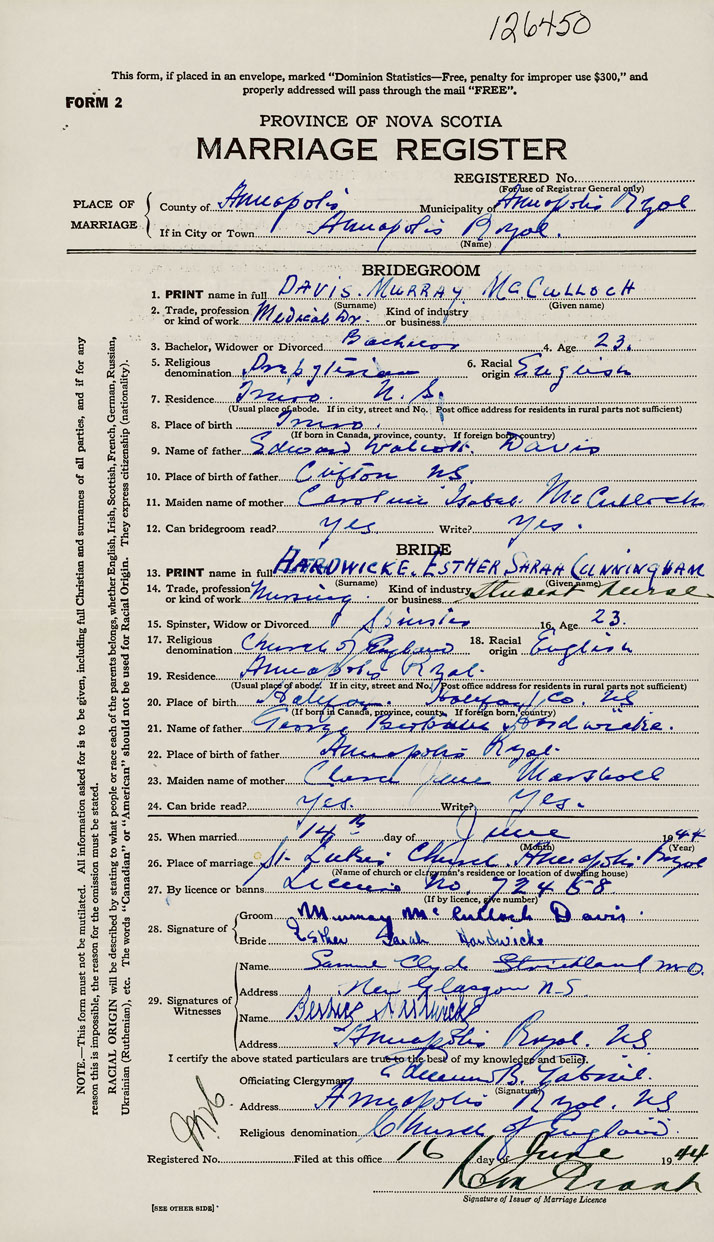 126450
This form, if placed in an envelope, marked "Dominion Statistics—Free, penalty for improper use $300," and
properly addressed will pass through the mail "FREE".
FORM 2
PROVINCE OF NOVA SCOTIA
MARRIAGE REGISTER
REGISTERED No.
(For use of Registrar General only)
PLACE OF MARRIAGE
County of Annapolis Municipality of Annapolis Royal
If in City or Town Annapolis Royal.
(Name)
BRIDEGROOM
1. PRINT name in full DAVIS. MURRAY McCULLOCH
(Surname) (Given name)
2. Trade, profession or kind of work Medical Dr. Kind of industry or business
3. Bachelor, Widower or Divorced Bachelor 4. Age 23.
5. Religious denomination 6. Racial origin English
7. Residence Truro. N.S.
(Usual place of abode. If in city, street and No. Post office address for residents in rural parts not sufficient)
8. Place of birth Truro.
(If born in Canada, province, county. If foreign born, country)
9. Name of father Edward Davis
10. Place of birth of father Clifton NS.
11. Maiden name of mother Caroline Isabel McCulloch
12. Can bridegroom read? yes Write? Yes.
BRIDE
13. PRINT name in full HARDWICKE. ESTHER SARAH CUNNINGHAM
(Surname) (Given name)
14. Trade, profession or kind of work Nursing. Kind of industry or business Student nurse
15. Spinster, Widow or Divorced Spinster 16. Age 23.
17. Religious denomination Church of England 18. Racial origin English
19. Residence Annapolis Royal.
(Usual place of abode. If in city, street and No. Post office address for residents in rural parts not sufficient)
20. Place of birth Halifax. Halifax Co. NS
(If born in Canada, province, county. If foreign born, country)
21. Name of father George Hardwicke.
22. Place of birth of father Annapolis Royal.
23. Maiden name of mother Clara Marshall
24. Can bride read? Yes. Write? Yes.
25. When married 14th day of June 1944
(Month) (Year)
26. Place of marriage St. Lukes Church. Annapolis Royal
(Name of church or clergyman's residence or location of dwelling house)
27. By licence or banns Licence No. 72458
(If by licence, give number)
28. Signature of
Groom Murray McCulloch Davis.
Bride Esther Sarah Hardwicke
29. Signatures of Witnesses
Name Samuel Clyde Strickland M.D.
Address New Glasgow N.S.
Name Hardwicke
Address Annapolis Royal. NS
I certify the above stated particulars are true to the best of my knowledge and belief.
Officiating Clergyman B. Gabriel.
(Signature)
Address Annapolis Royal. NS
Religious denomination Church of England.
Registered No. Filed at this office 16 day of June 1944
Signature of Issuer of Marriage Licence
[SEE OTHER SIDE]
NOTE.—This form must not be mutilated. All information asked for is to be given, including full Christian and surnames of all parties, and if for any
reason this is impossible, the reason for the omission must be stated.
RACIAL ORIGIN will be described by stating to what people or race each of the parents belongs, whether English, Irish, Scottish, French, German, Russian,
Ukrainian (Ruthenian), etc. The words "Canadian" or "American" should not be used for Racial Origin. They express citizenship (nationality).